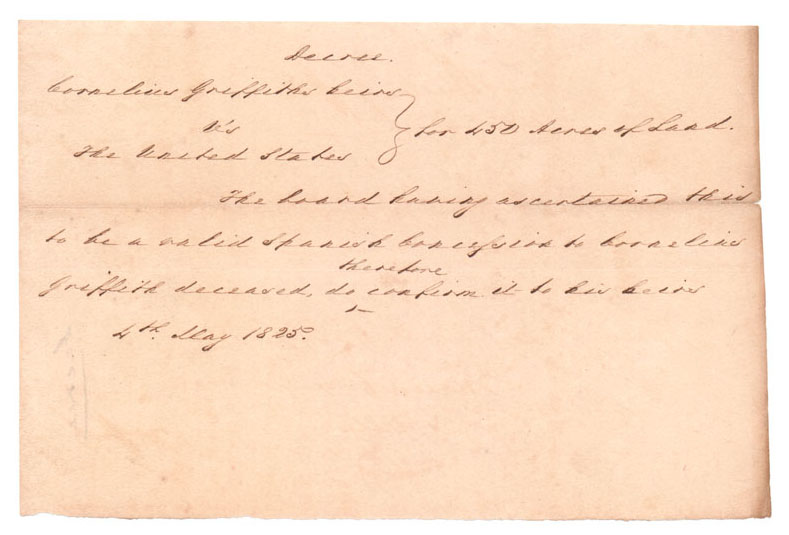 Decree.
Cornelius Griffiths heirs
Vs
for 450 Acres of Land.
The United States
The board having ascertained this
to be a valid Spanish Concession to Cornelius
therefore
Griffith deceased, do confirm it to his heirs
4th. May 1825.